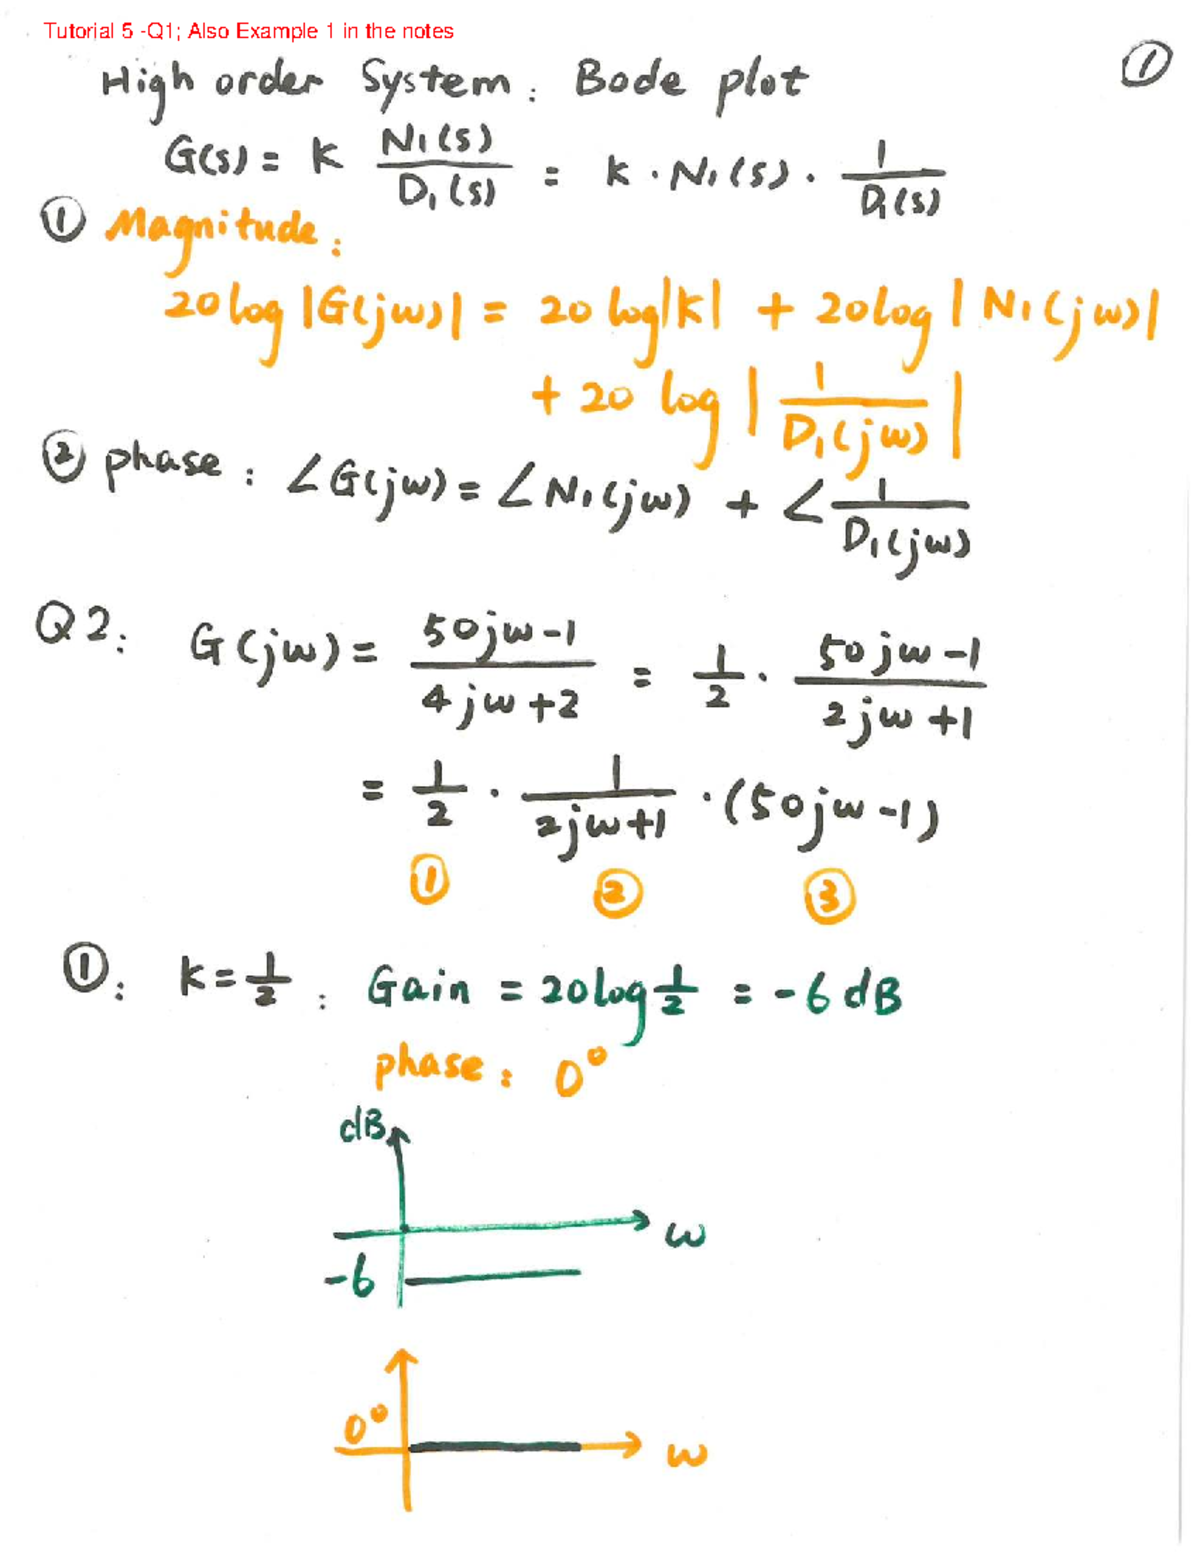 Tutorial 5 -Q1; Also Example 1 in the notes
①
High order System: Bode plot
G(s) = K N₁(s)/D₁(s) = K · N₁(s) · 1/D₁(s)
① Magnitude:
20 log |G(jω)| = 20 log|K| + 20 log | N₁(jω)|
+ 20 log | 1/D₁(jω) |
② phase: ∠G(jω) = ∠N₁(jω) + ∠ 1/D₁(jω)
Q2: G(jω) = 50jω-1/4jω+2 = 1/2 · 50jω-1/2jω+1
= 1/2 · 1/2jω+1 · (50jω-1)
① ② ③
①: K = 1/2 : Gain = 20 log 1/2 = -6 dB
phase: 0°
dB
ω
-6
0°
ω